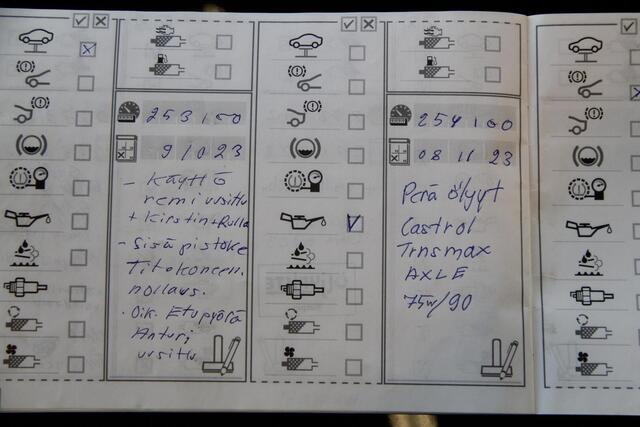 253100
9 10 23
- Käyttö
remi uusittu
+ Kirstin + Rulla
- Sisäpistoke
Titokoneen
nollaus.
· Oik. Etupyörä
Anturi
uusittu
254100
08 11 23
Perä öljyt
Castrol
Trnsmax
AXLE
75w/90